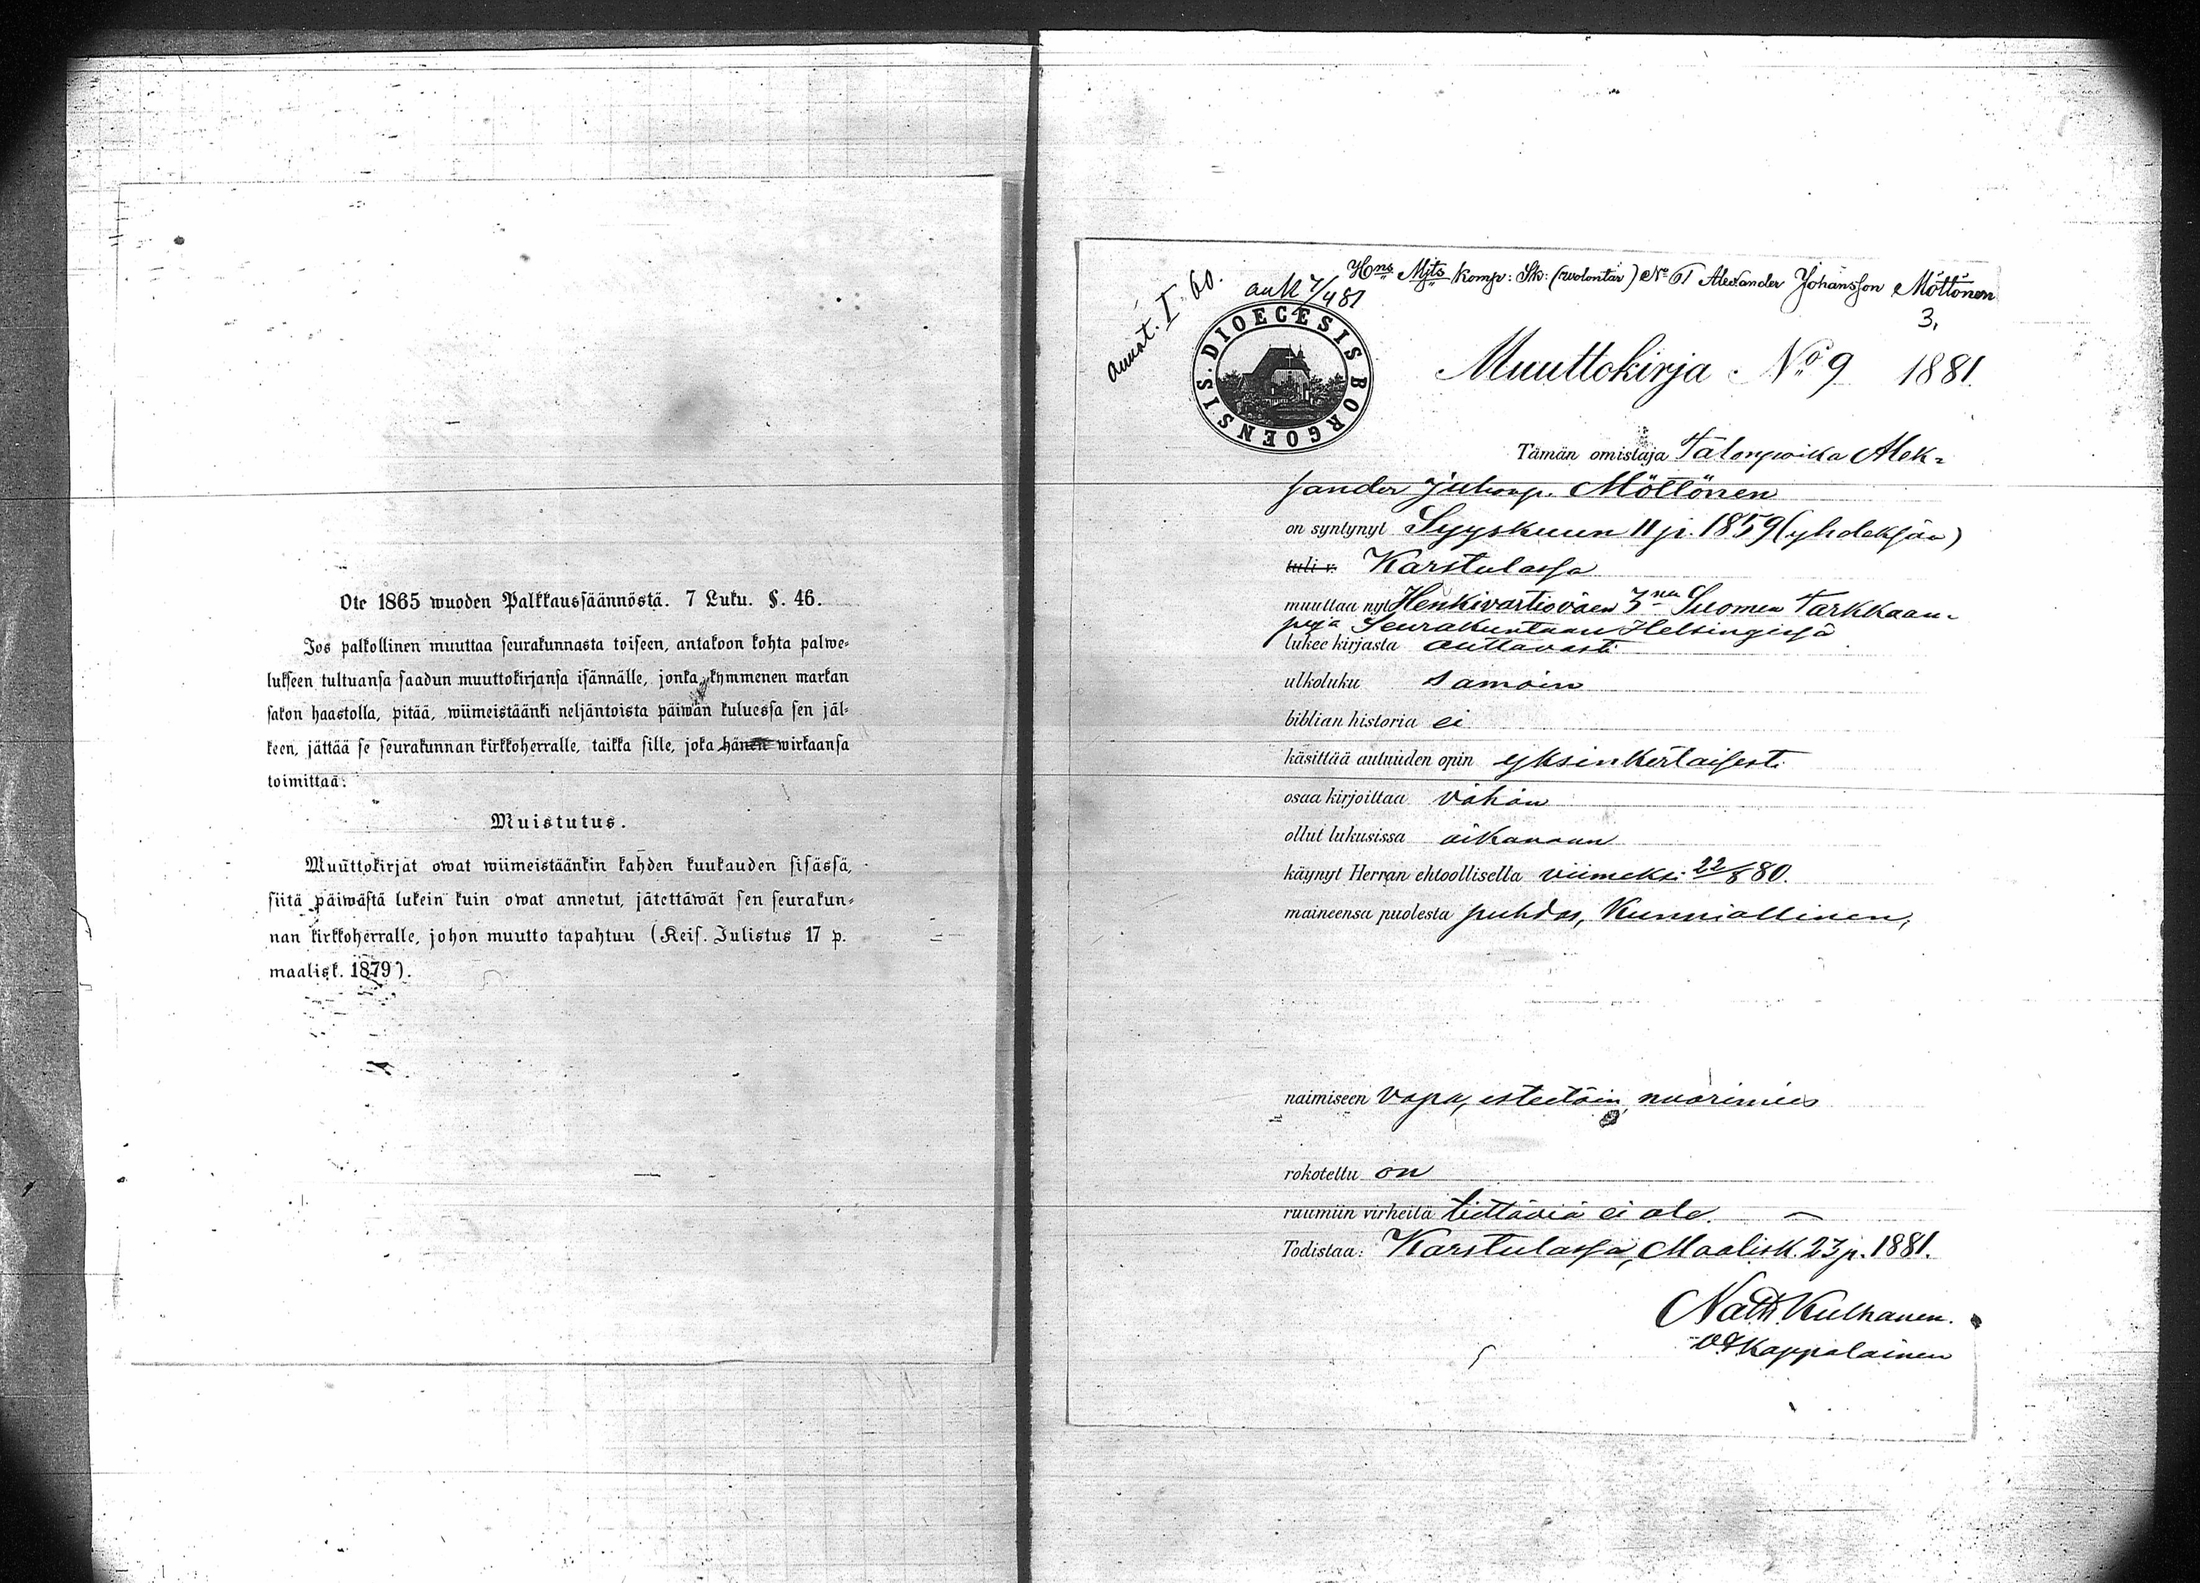 Ote 1865 wuoden Palkkaussäännöstä. 7 Luku. §. 46.
Jos palkollinen muuttaa seurakunnasta toiseen, antakoon kohta palwe-
lukseen tultuansa saadun muuttokirjansa isännälle, jonka, kymmenen markan
sakon haastolla, pitää, wiimeistäänki neljäntoista päiwän kuluessa sen jäl-
keen, jättää se seurakunnan kirkkoherralle, taikka sille, joka hänen wirkaansa
toimittaa.
Muistutus.
Muuttokirjat owat wiimeistäänkin kahden kuukauden sisässä,
siitä päiwästä lukein kuin owat annetut, jätettäwät sen seurakun-
nan kirkkoherralle, johon muutto tapahtuu (Keis. Julistus 17 p.
maalisk. 1879).
Hns Mjts Komp: Sk: (wolontär) No 61 Alexander Johansson Möttönen
3,
annot. I. 60.
ank 7/4 81
DIOECESIS BORGOENSIS.
Muuttokirja No 9 1881
Tämän omistaja Talonpoika Alek-
sander Juhonp. Möttönen
on syntynyt Syyskuun 11 p. 1859 (yhdeksän)
tuli v. Karstulassa
muuttaa nyt Henkivartioväen 3nen Suomen Tarkkaam-
puja Seurakuntaan Helsingissä
lukee kirjasta auttavasti
ulkoluku samoin
biblian historia ei
käsittää autuuden opin yksinkertaisesti
osaa kirjoittaa vähän
ollut lukusissa aikanaan
käynyt Herran ehtoollisella viimeksi 22/8 80.
maineensa puolesta puhdas, kunniallinen,
naimiseen vapa, esteetöin, nuorimies
rokotettu on
ruumiin virheitä tiettäviä ei ole.
Todistaa: Karstulassa, Maalisk. 23 p. 1881.
Nath. Kulhanen.
Kappalainen